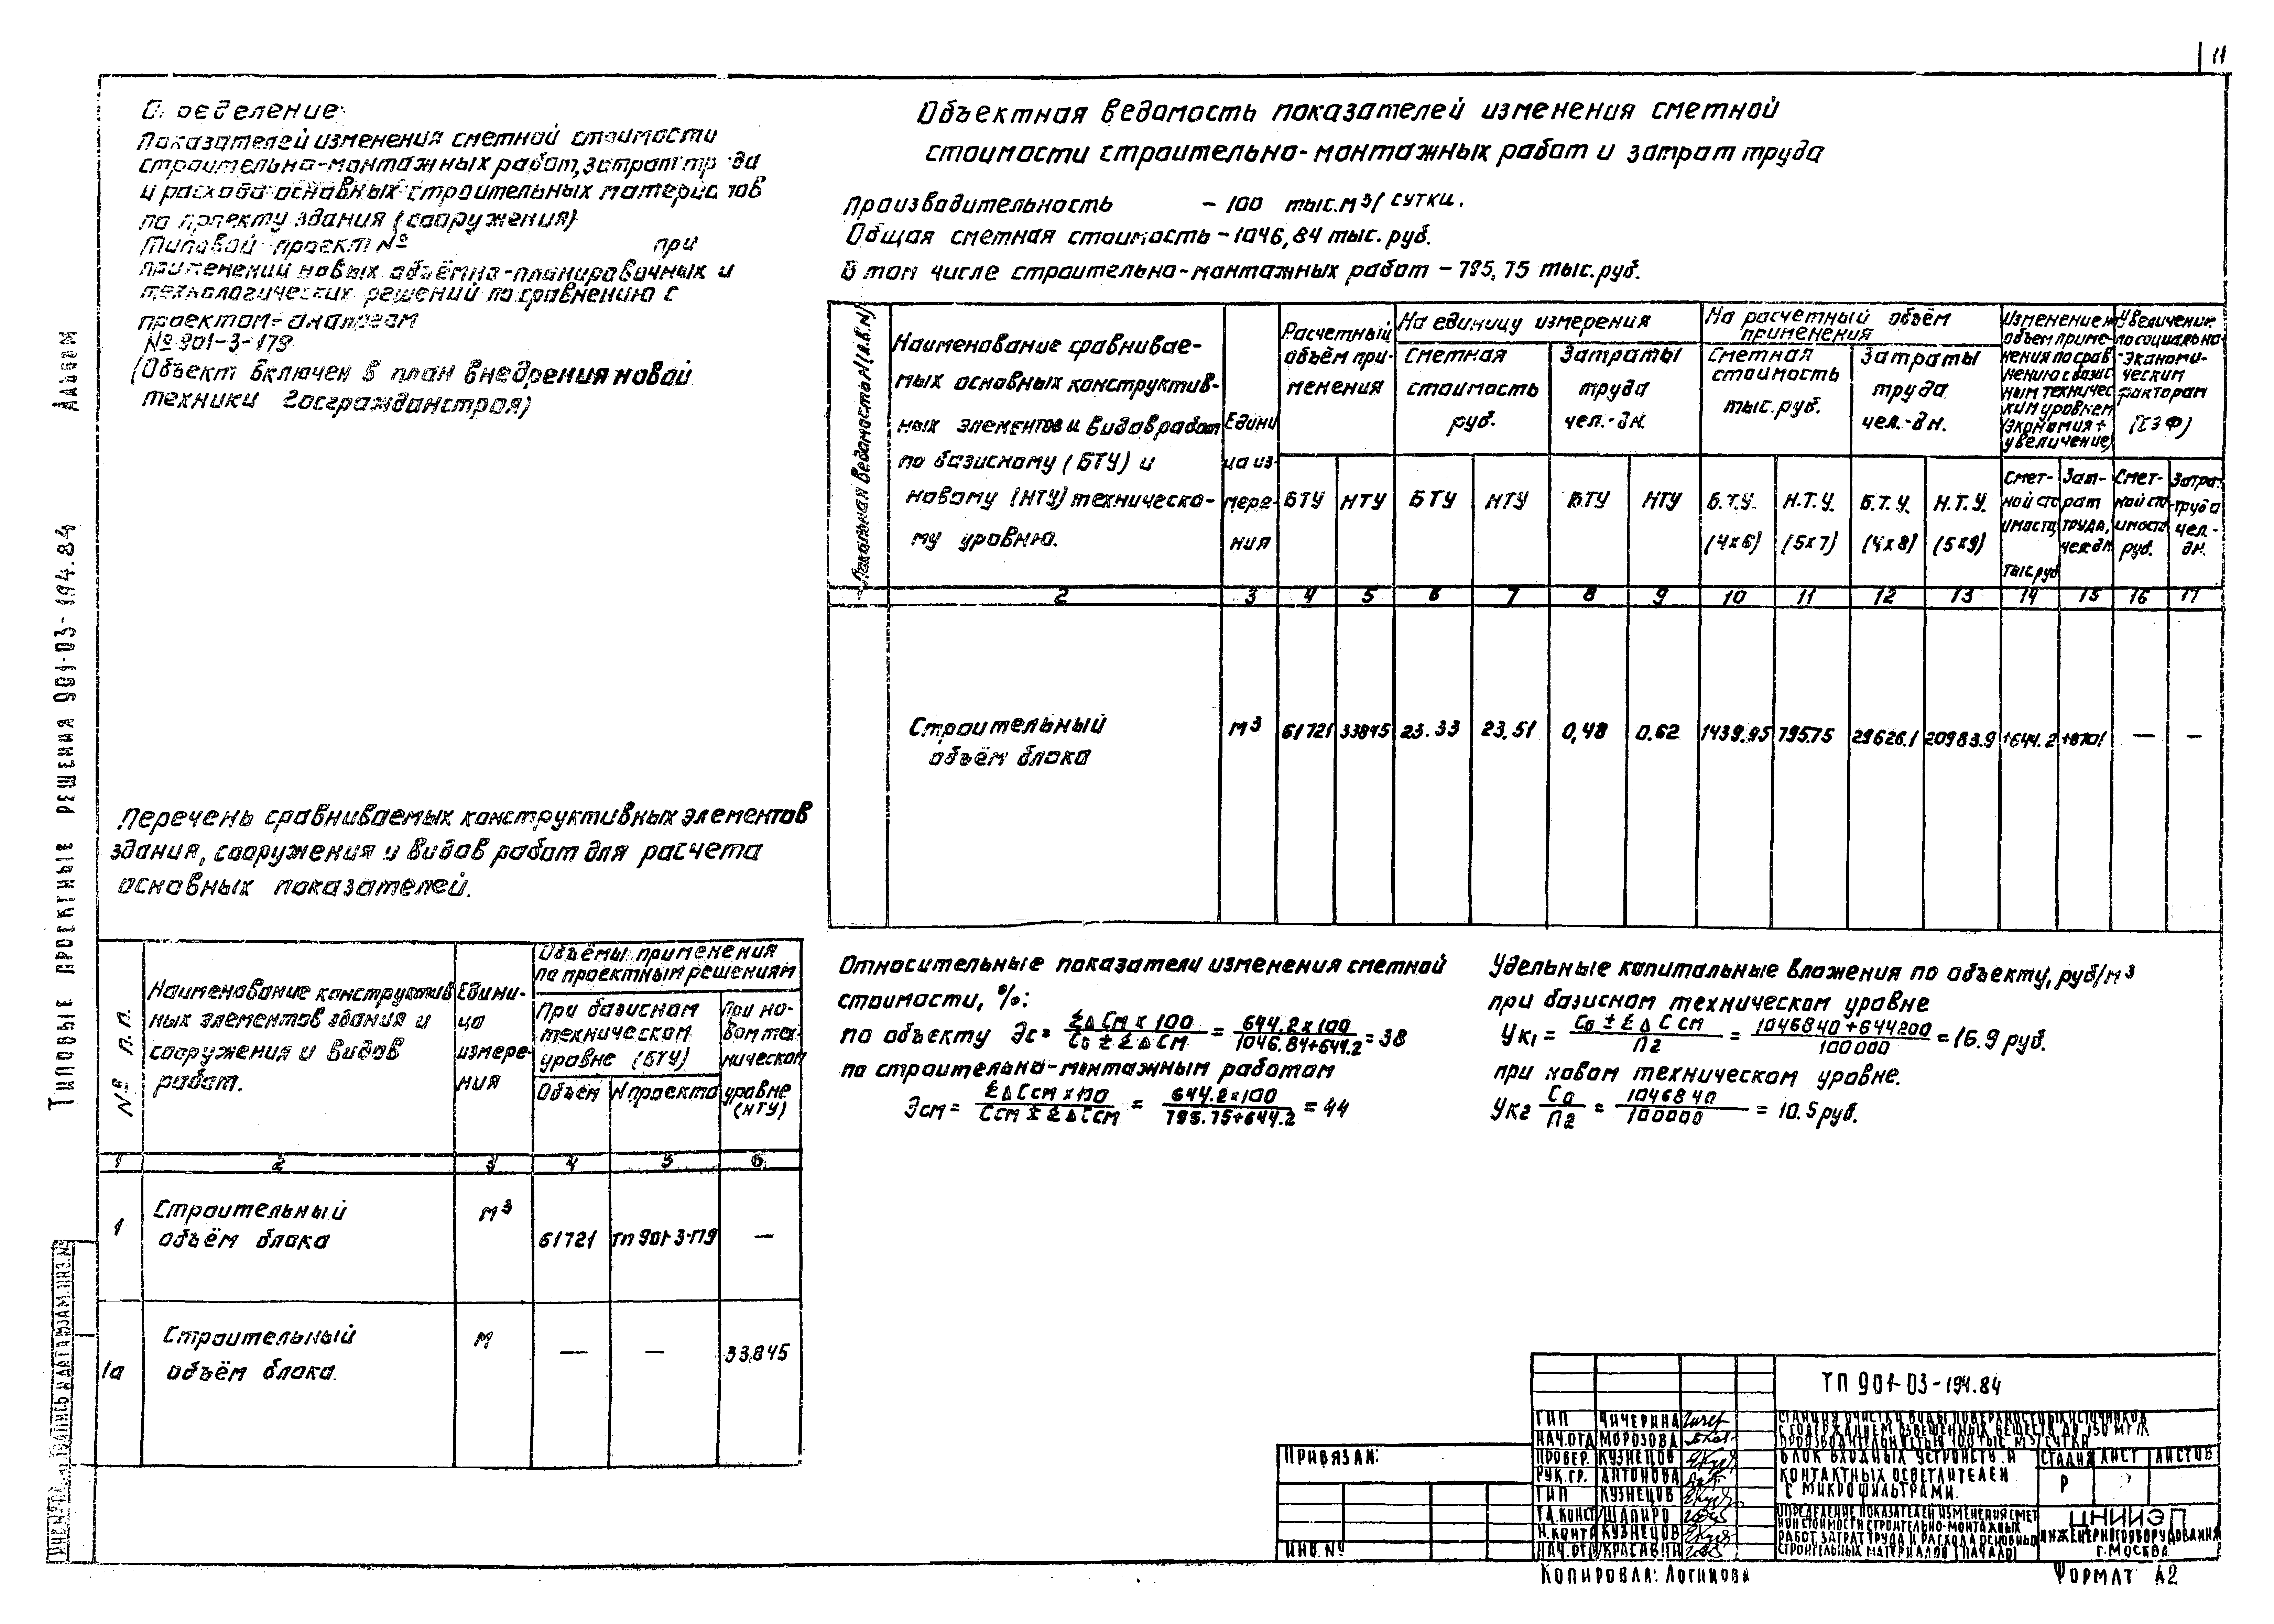 11
Типовые проектные решения 901-03-194.84 Альбом
Показателей изменения сметной стоимости
строительно-монтажных работ, затрат
и расхода основных строительных
по проекту здания (сооружения)
Типовой проект № при
применений новых объёмно-планировочных и
технологических решений по сравнению с
проектом-аналогом
№ 901-3-179
(Объект включен в план внедрения новой
техники Госгражданстроя)
Объектная ведомость показателей изменения сметной
стоимости строительно-монтажных работ и затрат труда
Производительность – 100 тыс. м³/сутки.
Общая сметная стоимость – 1046,84 тыс. руб.
В том числе строительно-монтажных работ – 795,75 тыс. руб.
Локальная ведомость N (Л.В.N)
Наименование сравнивае-
мых основных конструктив-
ных элементов и видов работ
по базисному (БТУ) и
новому (НТУ) техническо-
му уровню.
Едини
ца из-
мере-
ния
Расчетный
объём при-
менения
БТУ НТУ
На единицу измерения
Сметная
стоимость
руб.
БТУ НТУ
Затраты
труда
чел.-дн.
БТУ НТУ
На расчетный объём
применения
Сметная
стоимость
тыс. руб.
Б.Т.У. Н.Т.У.
(4х6) (5х7)
Затраты
труда
чел.-дн.
Б.Т.У. Н.Т.У.
(4х8) (5х9)
Изменение н
объем приме-
нения по срав
нению с базис
ным техничес
ким уровнем
(экономия +
увеличение)
Смет-
ной сто
имости,
тыс. руб
Зат-
рат
труда,
чел.дн
Увеличение
по социально-
-экономи-
ческим
факторам
(СЭФ)
Смет-
ной сто
имости
руб.
Затра-
труда
чел.-
дн.
2 3 4 5 6 7 8 9 10 11 12 13 14 15 16 17
Строительный
объём блока
м³ 61721 33845 23.33 23.51 0,48 0.62 1439.95 795.75 29626.1 20983.9 +644.2 +8701 — —
Перечень сравниваемых конструктивных элементов
здания, сооружения и видов работ для расчета
основных показателей.
№ п.п.
Наименование конструктив
ных элементов здания и
сооружения и видов
работ.
Едини-
ца
измере-
ния
Объёмы применения
по проектным решениям
При базисном
техническом
уровне (БТУ)
Объём N проекта
При но-
вом тех-
ническом
уровне
(НТУ)
1 2 3 4 5 6
1 Строительный
объём блока
м³ 61721 ТП 901-3-179 —
1а Строительный
объём блока.
м — — 33845
Относительные показатели изменения сметной
стоимости, %:
по объекту Эс = ΣΔСм х 100 / Со ± ΣΔСм = 644.2х100 / 1046.84+644.2 = 38
по строительно-монтажным работам
Эсм = ΣΔСсм х 100 / Ссм ± ΣΔСсм = 644.2х100 / 795.75+644.2 = 44
Удельные капитальные вложения по объекту, руб/м³
при базисном техническом уровне
Ук1 = Со ± ΣΔСсм / Пг = 1046840+644200 / 100000 = 16.9 руб.
при новом техническом уровне.
Ук2 Со / Пг = 1046840 / 100000 = 10.5 руб.
Привязан:
Инв.№
ТП 901-03-194.84
ГИП Чичерина
Нач.отд Морозова
Провер. Кузнецов
Рук.гр. Антонова
ГИП Кузнецов
Гл.конст Шапиро
Н.конт Кузнецов
Нач.отд Красавин
Станция очистки воды поверхностных источников
с содержанием взвешенных веществ до 150 мг/л
производительностью 100 тыс. м³/сутки
Блок входных устройств и
контактных осветлителей
с микрофильтрами.
Стадия Лист Листов
Р
Определение показателей изменения смет
ной стоимости строительно-монтажных
работ затрат труда и расхода основных
строительных материалов (начало)
ЦНИИЭП
инженерного оборудования
г. Москва
Копировала: Логинова
Формат А2